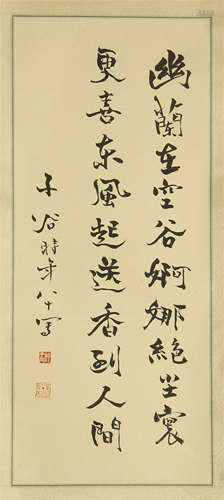 幽蘭在空谷婀娜絕尘寰
更喜东風起送香到人間
子谷時年八十写